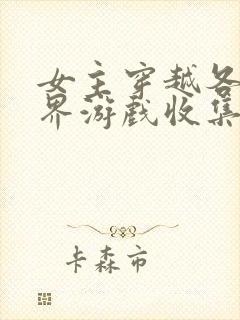 女主穿越各
界游戏收集
卡森市